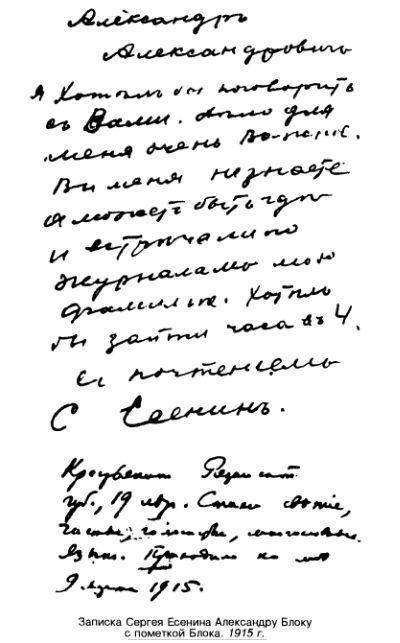 Александръ
Александровичъ
я Хотѣлъ бы поговорить
съ Вами. Дѣло для
меня очень важное.
Вы меня не знаете
а может быть где
и встречали по
журналамъ мою
фамилию. Хотѣлъ
бы зайти часа въ 4.
Съ почтениемъ
С Есенинъ.
Крестьянин Рязанской
губ., 19 лет. Стихи свежие,
чистые, голосистые, многословные.
Язык. Приходил ко мне
9 марта 1915.
Записка Сергея Есенина Александру Блоку
с пометкой Блока. 1915 г.